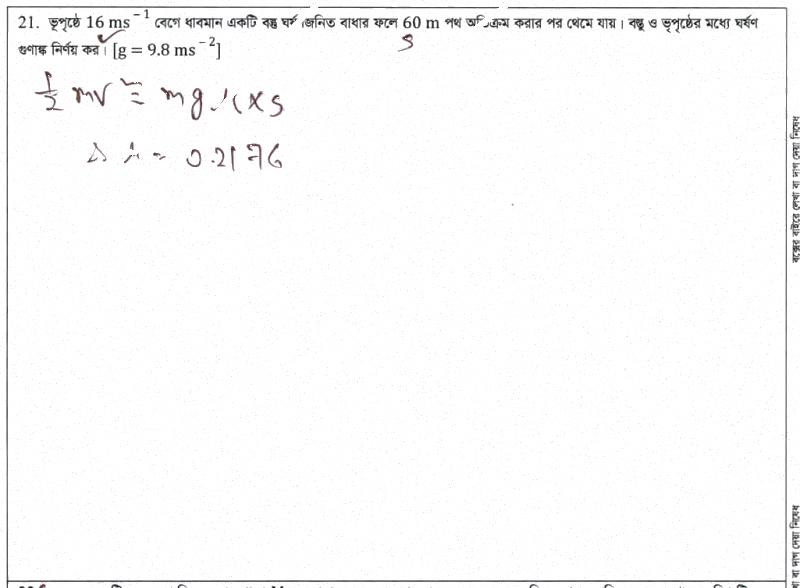 21. ভূপৃষ্ঠে 16 ms⁻¹ বেগে ধাবমান একটি বস্তু ঘর্ষ জনিত বাধার ফলে 60 m পথ অতিক্রম করার পর থেমে যায়। বস্তু ও ভূপৃষ্ঠের মধ্যে ঘর্ষণ
গুণাঙ্ক নির্ণয় কর। [g = 9.8 ms⁻²]
S
½ mv² = mgμ × s
μ = 0.2176
বক্সের বাইরে লেখা বা দাগ দেয়া নিষেধ
বা দাগ দেয়া নিষেধ